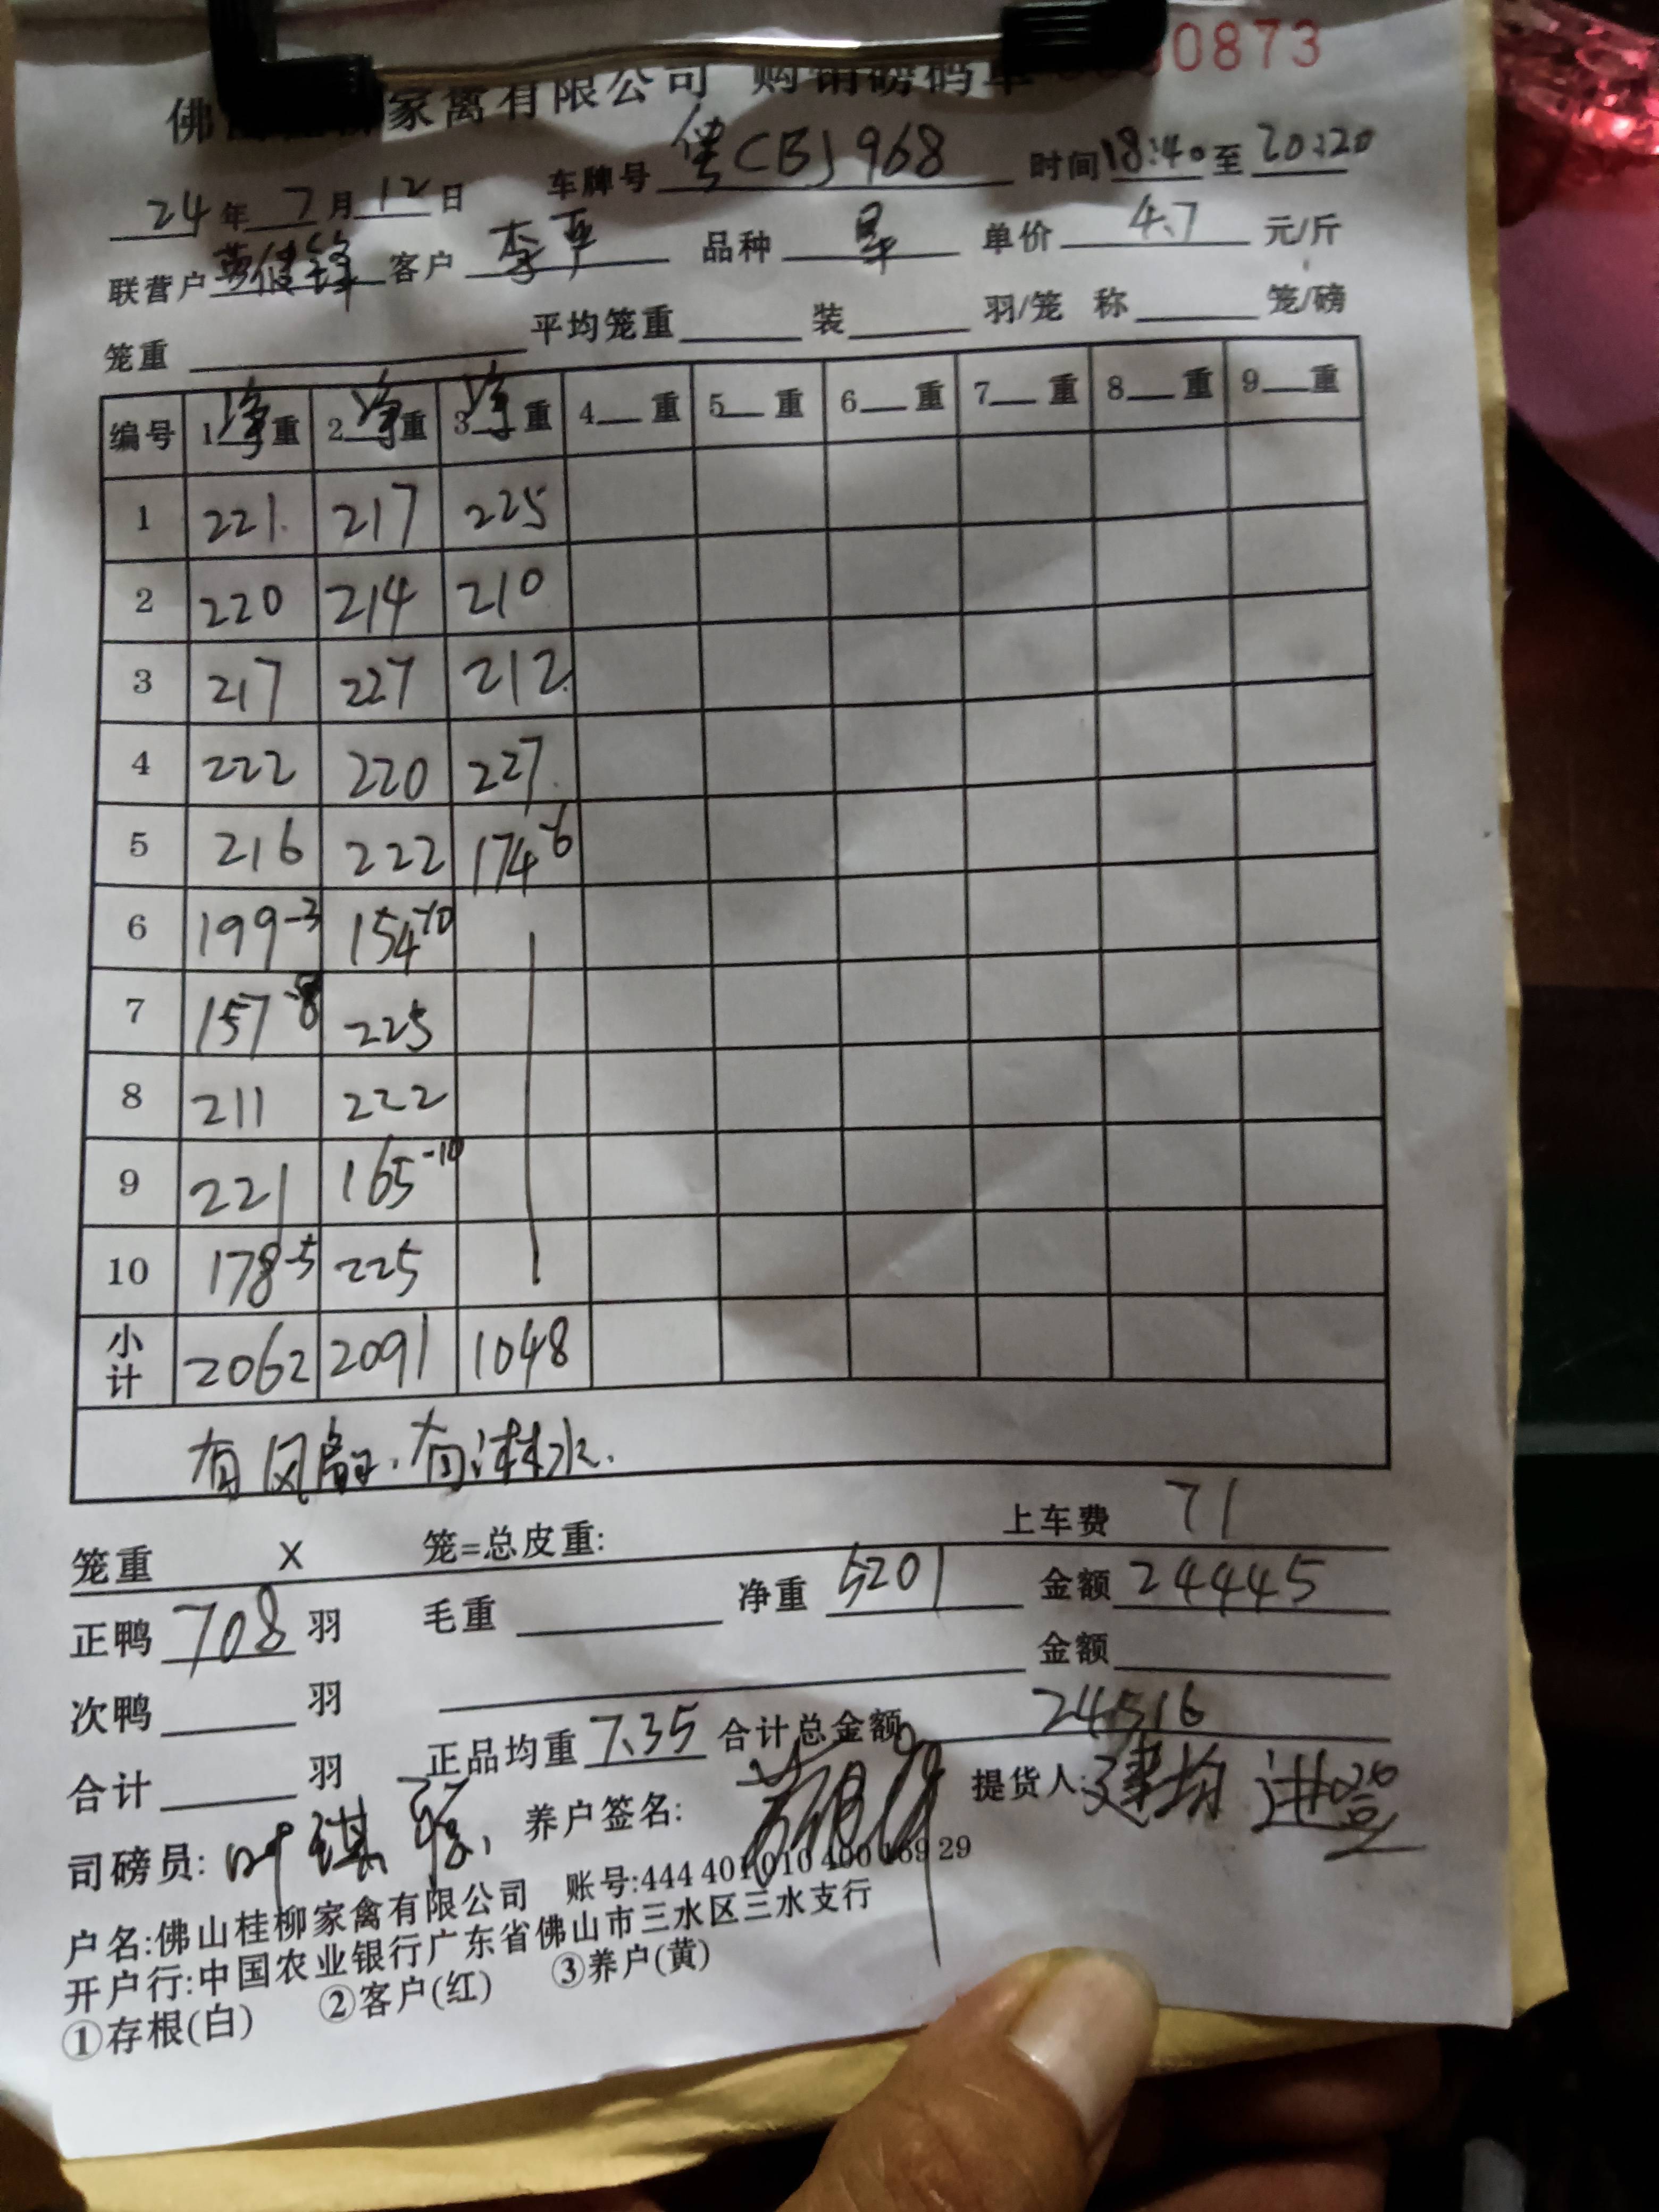 佛 家禽有限公司 购销磅码单 0873
24年7月12日 车牌号 粤CBJ968 时间18:40至20:20
联营户 客户 李平 品种 单价 4.7 元/斤
笼重 平均笼重 装 羽/笼 称 笼/磅
编号 1净重 2净重 3净重 4 重 5 重 6 重 7 重 8 重 9 重
1 221 217 225
2 220 214 210
3 217 227 212
4 222 220 227
5 216 222 174-6
6 199-3 154-10
7 157-8 225
8 211 222
9 221 165-10
10 178-5 225
小计 2062 2091 1048
有风扇.有淋水.
笼重 X 笼=总皮重: 上车费 71
正鸭 708 羽 毛重 净重 5201 金额 24445
次鸭 羽 金额
合计 羽 正品均重 7.35 合计总金额 24516
司磅员: 叶 养户签名: 提货人:建均
户名:佛山桂柳家禽有限公司 账号:444 401 010 400 169 29
开户行:中国农业银行广东省佛山市三水区三水支行
①存根(白) ②客户(红) ③养户(黄)